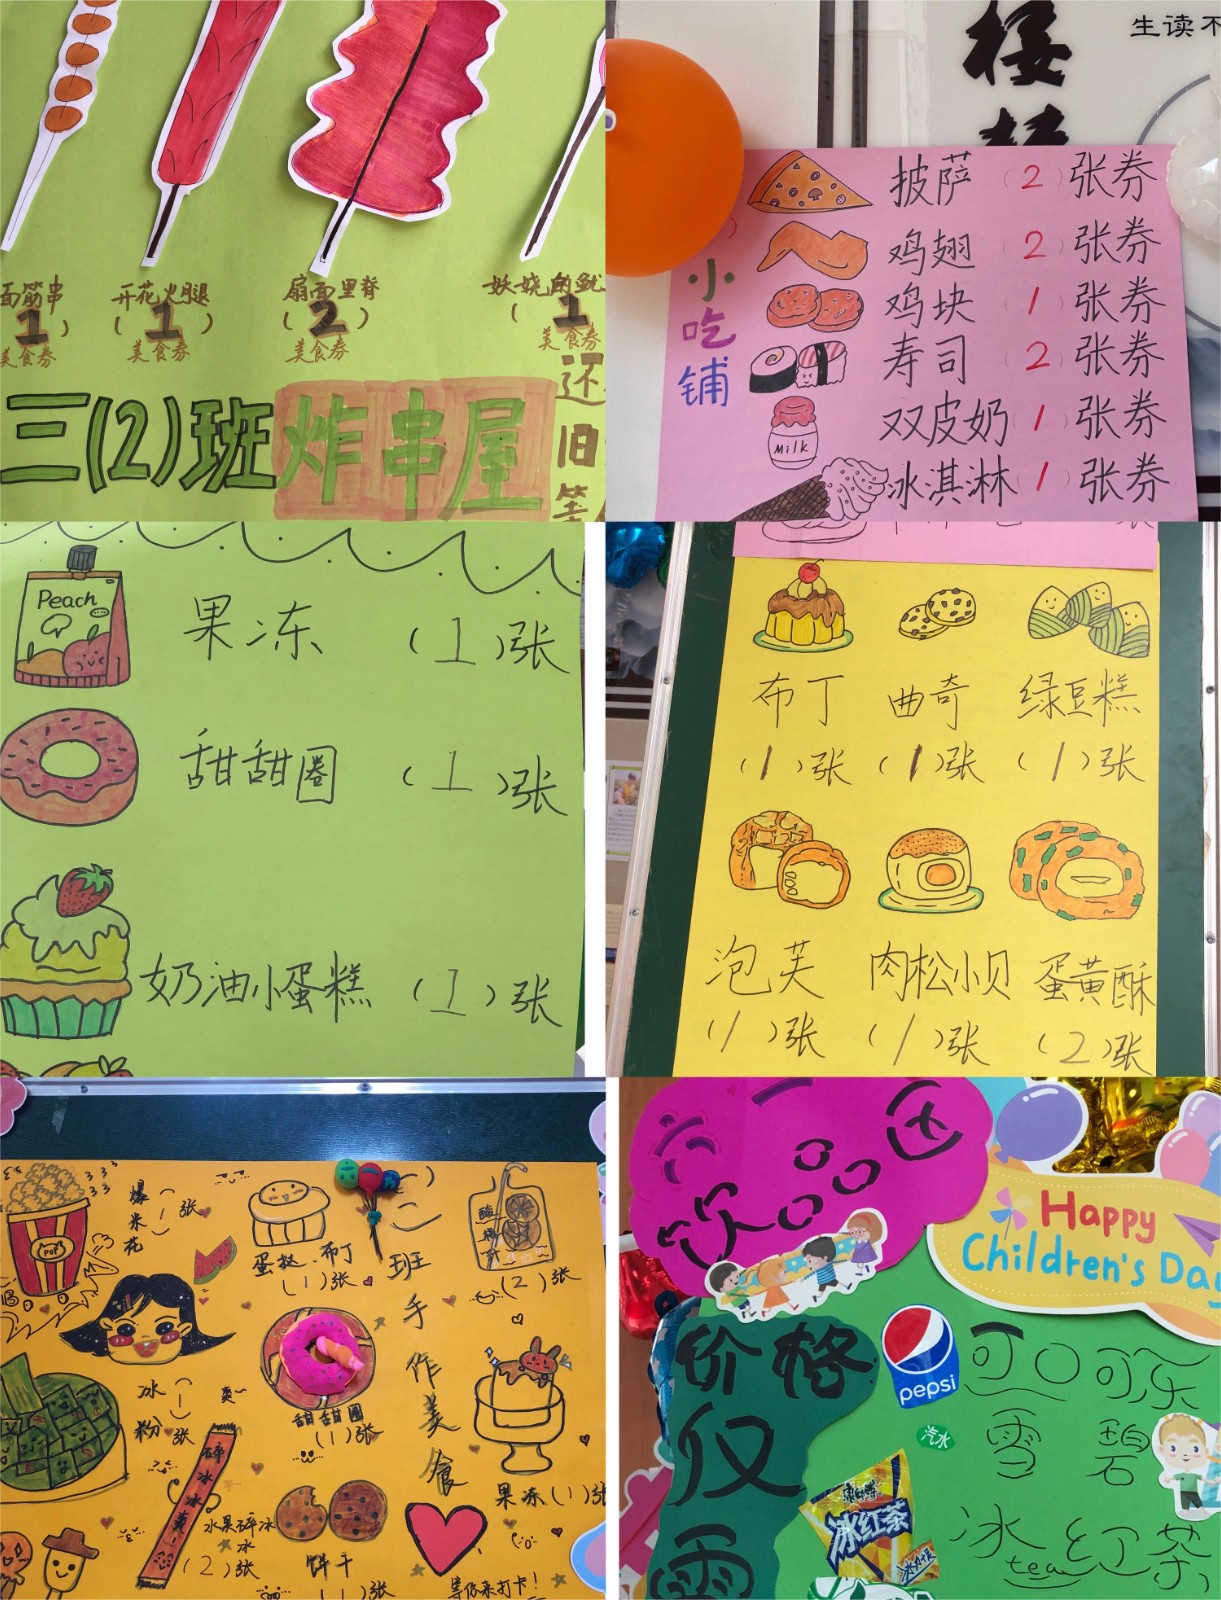 面筋串 开花火腿 扇面里脊 妖娆的鱿
(1) (1) (2) (1
美食券 美食券 美食券 美食券
还
三(2)班炸串屋
旧
生读不
楼
小吃铺
披萨 (2) 张券
鸡翅 2 张券
鸡块 1 张券
寿司 (2) 张券
Milk
双皮奶 1 张券
冰淇淋 1 张券
Peach
果冻 (1)张
甜甜圈 (1)张
奶油小蛋糕 (1)张
布丁 曲奇 绿豆糕
(1)张 (1)张 (1)张
泡芙 肉松小贝 蛋黄酥
(1)张 (1)张 (2)张
爆米花 (1)张
POP
蛋挞、布丁
(1)张
(二)班手作美食
酸梅
(2)张
冰粉 (1)张
爽~
甜甜圈
(1)张
碎冰冰爽!
水果碎冰冰
(2)张
饼干
(1)张
果冻(1)张
等你来打卡!
饮品区
Happy
Children's Day
价格仅需
pepsi
可口可乐
汽水
雪碧
康师傅
冰红茶
冰红茶
tea